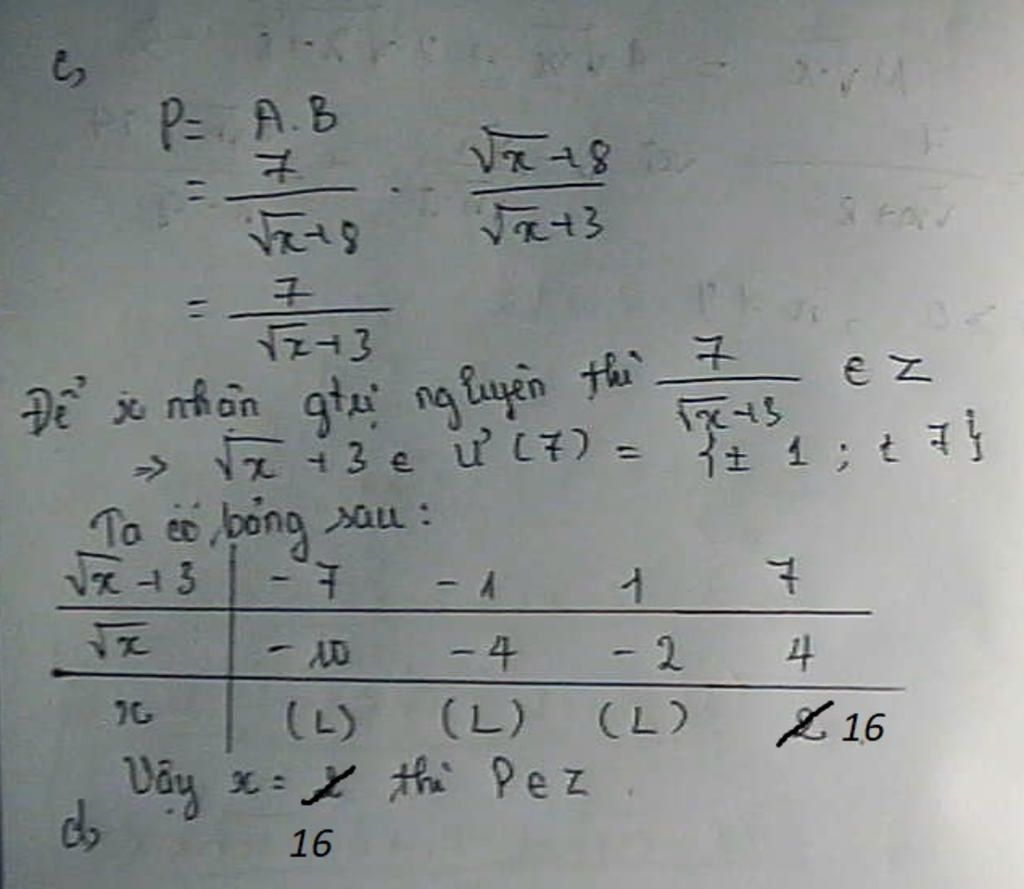 c,
P = A.B
= 7/(√x+8) · (√x+8)/(√x+3)
= 7/(√x+3)
Để x nhận gtrị nguyên thì 7/(√x+3) ∈ Z
=> √x + 3 ∈ Ư(7) = {± 1 ; ± 7}
Ta có bảng sau:
√x + 3 | -7 -1 1 7
√x | -10 -4 -2 4
x | (L) (L) (L) 2 16
Vậy x = 2 thì P ∈ Z.
16
d,